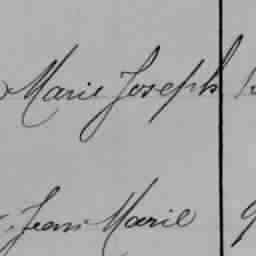 Marie Joseph
Jean Marie